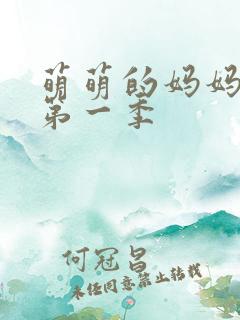 萌萌的妈妈
第一季
何冠昌
未经同意禁止转载